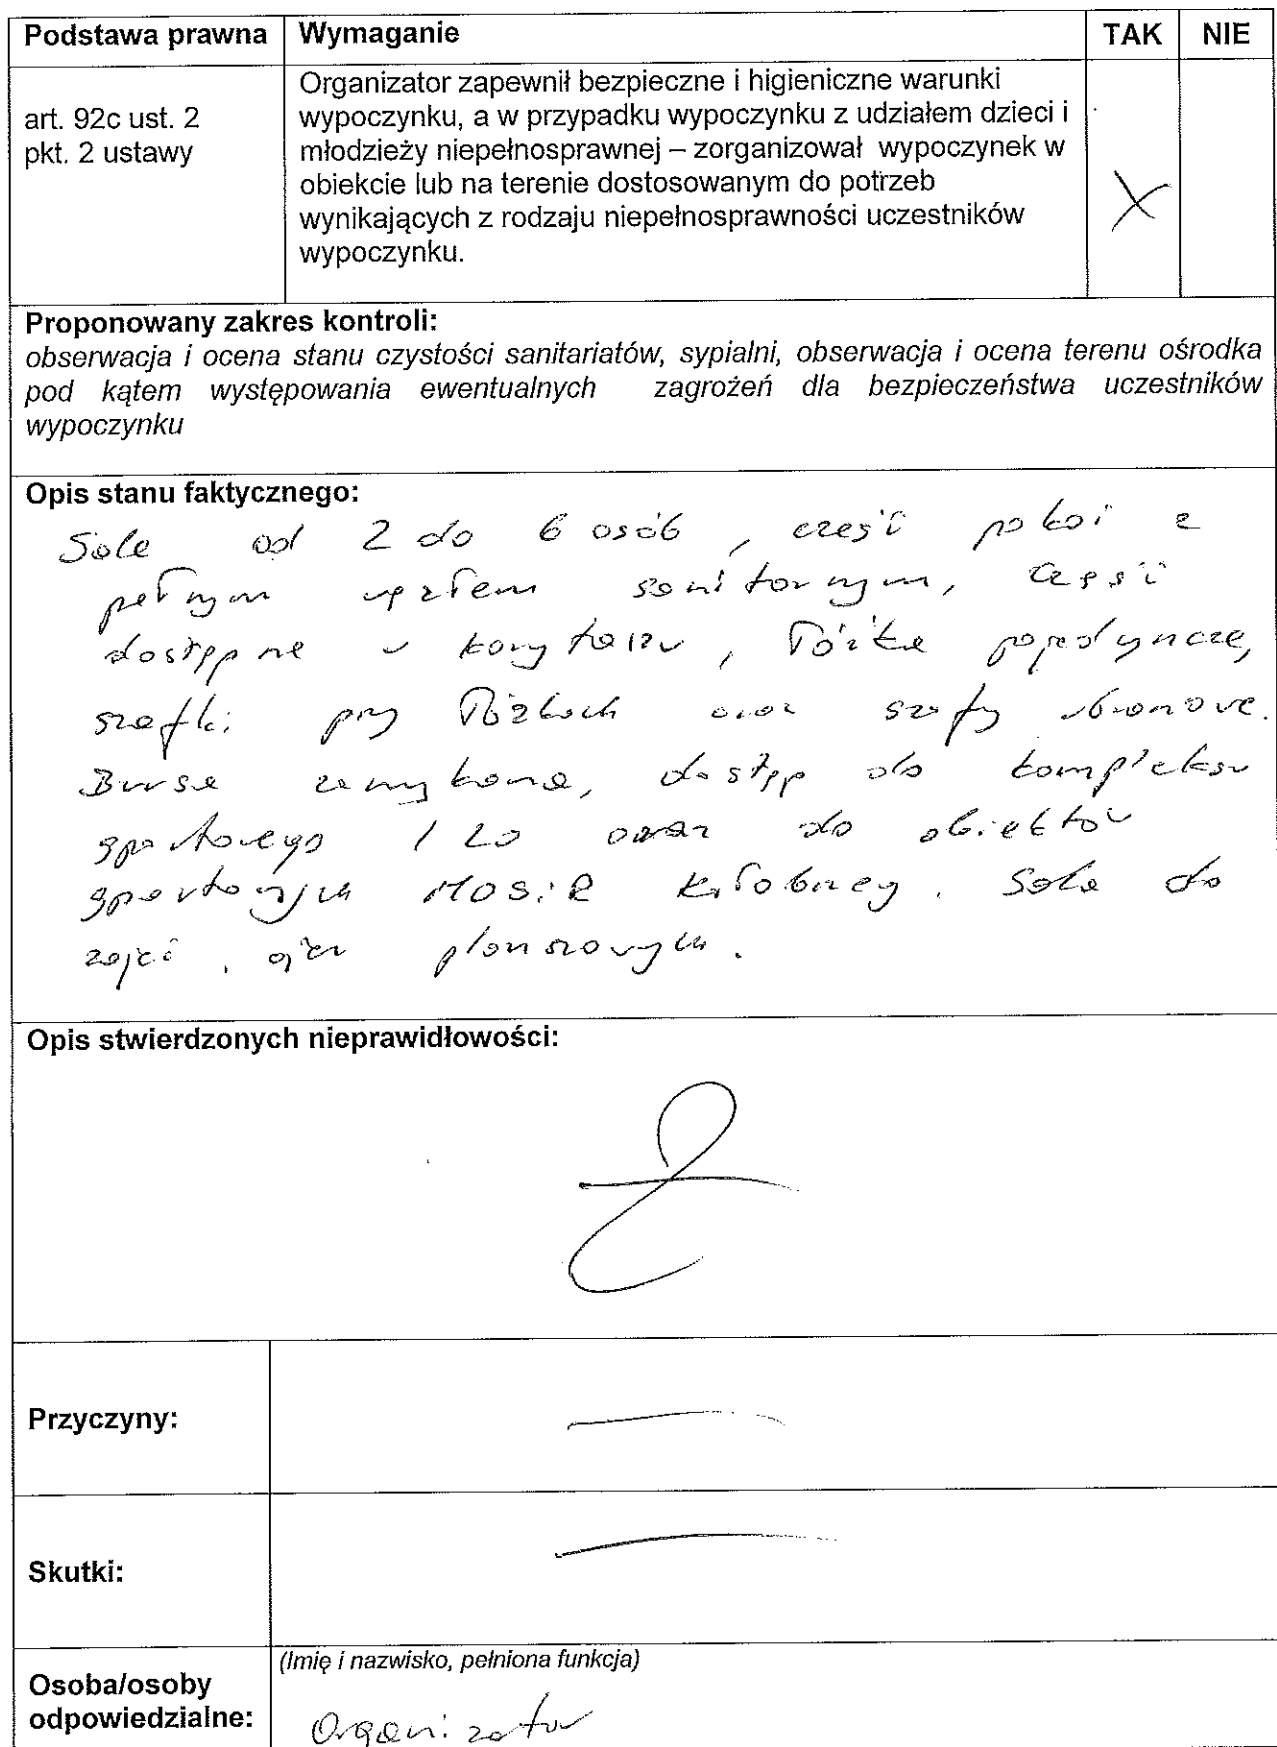 Podstawa prawna Wymaganie TAK NIE
art. 92c ust. 2
pkt. 2 ustawy
Organizator zapewnił bezpieczne i higieniczne warunki
wypoczynku, a w przypadku wypoczynku z udziałem dzieci i
młodzieży niepełnosprawnej – zorganizował wypoczynek w
obiekcie lub na terenie dostosowanym do potrzeb
wynikających z rodzaju niepełnosprawności uczestników
wypoczynku.
X
Proponowany zakres kontroli:
obserwacja i ocena stanu czystości sanitariatów, sypialni, obserwacja i ocena terenu ośrodka
pod kątem występowania ewentualnych zagrożeń dla bezpieczeństwa uczestników
wypoczynku
Opis stanu faktycznego:
Sale od 2 do 6 osób, część pokoi z
pełnym węzłem sanitarnym, część
dostępne w korytarzu, łóżka pojedyncze,
szafki przy łóżkach oraz szafy ubraniowe.
Bursa zamykana, dostęp do kompleksu
sportowego I LO oraz do obiektów
sportowych MOSiR. Sala do
zajęć, gier planszowych.
Opis stwierdzonych nieprawidłowości:
Przyczyny: —
Skutki: —
Osoba/osoby
odpowiedzialne:
(Imię i nazwisko, pełniona funkcja)
Organizator